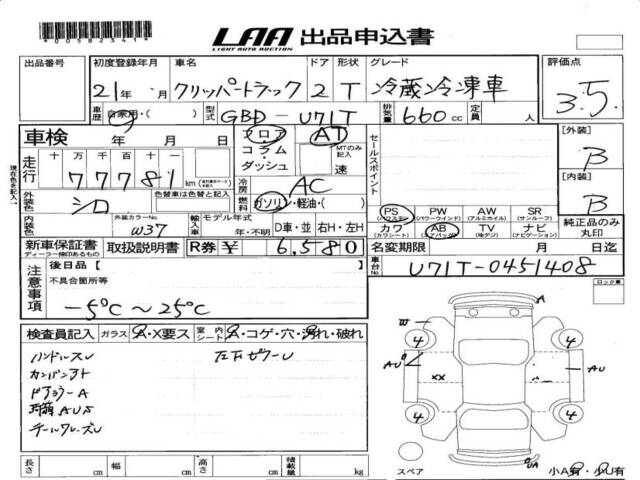 *0058234 1*
LAA 出品申込書
LIGHT AUTO AUCTION
出品番号 初度登録年月 車名 ドア 形状 グレード 評価点
21年 ・月 クリッパートラック 2 T 冷蔵冷凍車 3.5
車歴 自家用・( ) 型式 GBD-U71T 排気量 660cc 定員 人
車検 年 月 日 フロア AT セールスポイント [外装]
コラム MTのみ記入 B
走行 十万千百十一 ・ダッシュ 速
77781 km 冷房 AC [内装]
外装色 シロ 色替車は色替前も記入 燃料 ガソリン・軽油・( ) B
現在色を記入
PS PW AW SR 純正品のみ丸印
(パワステ) (パワーウインド) (アルミホイル) (サンルーフ)
内装色 外装カラーNo W37 輸入車 モデル年式 年・不明 D車・並 右H・左H カワ AB TV ナビ
(カワシート) (エアバック) (地デジ) (ナビゲーション)
新車保証書 取扱説明書 R券 ¥ 6,580 名変期限 月 日迄
ディーラー捺印あるもの
車台No U71T-0451408
注意事項 後日品【 】 ロック車
不具合箇所等
-5℃~25℃
A
検査員記入 ガラス A・X要ス 室内 シート A・コゲ・穴・汚れ・破れ
ハンドルスレ 左下ゼウーU
カンバンアト
ドアミラーA
テールワレーズU
4 4
AU XX AU
4 4
UA
長さ cm 幅 cm 高さ cm 積載量 kg
スペア 小A有・小U有